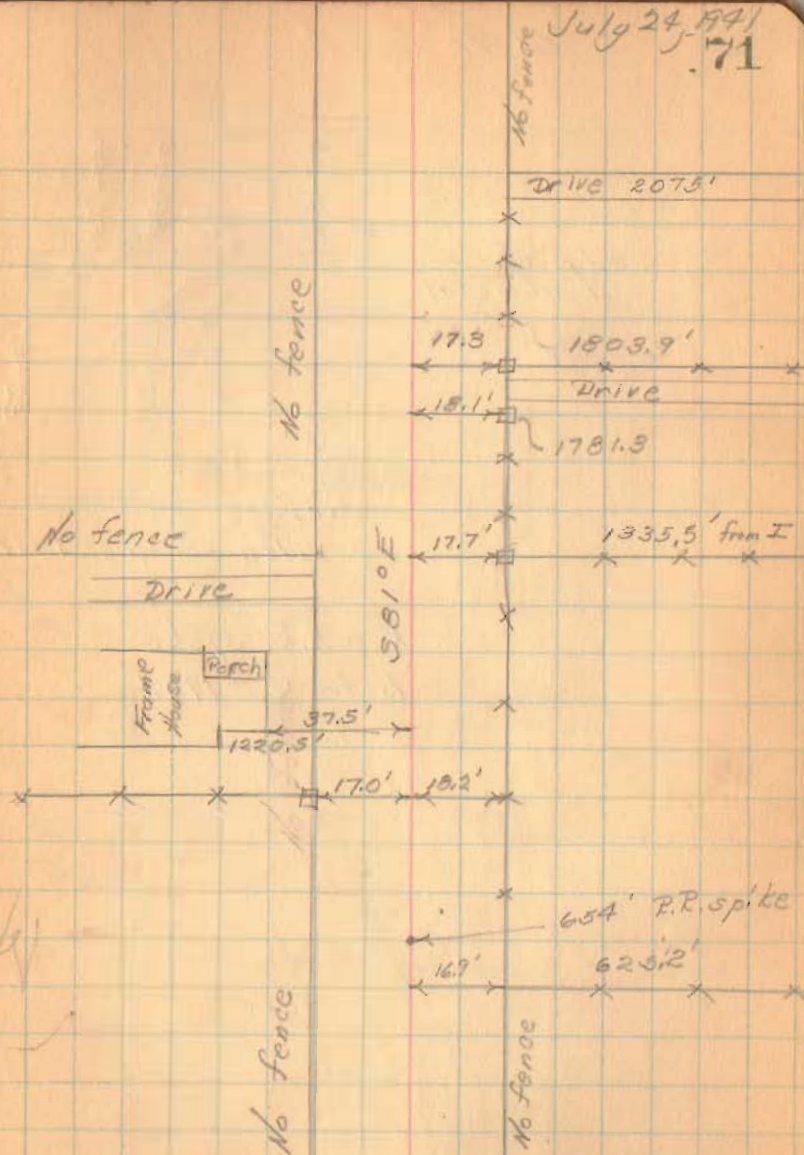 July 24, 1941
71
No fence
Drive 2075'
No fence
17.3
1803.9'
Drive
18.1'
1781.3
No fence
S81°E
17.7'
1335.5' from I
Drive
Porch
Frame
House
37.5'
1220.5'
17.0'
18.2'
654' R.R. spike
16.9'
625.2'
No fence
No fence